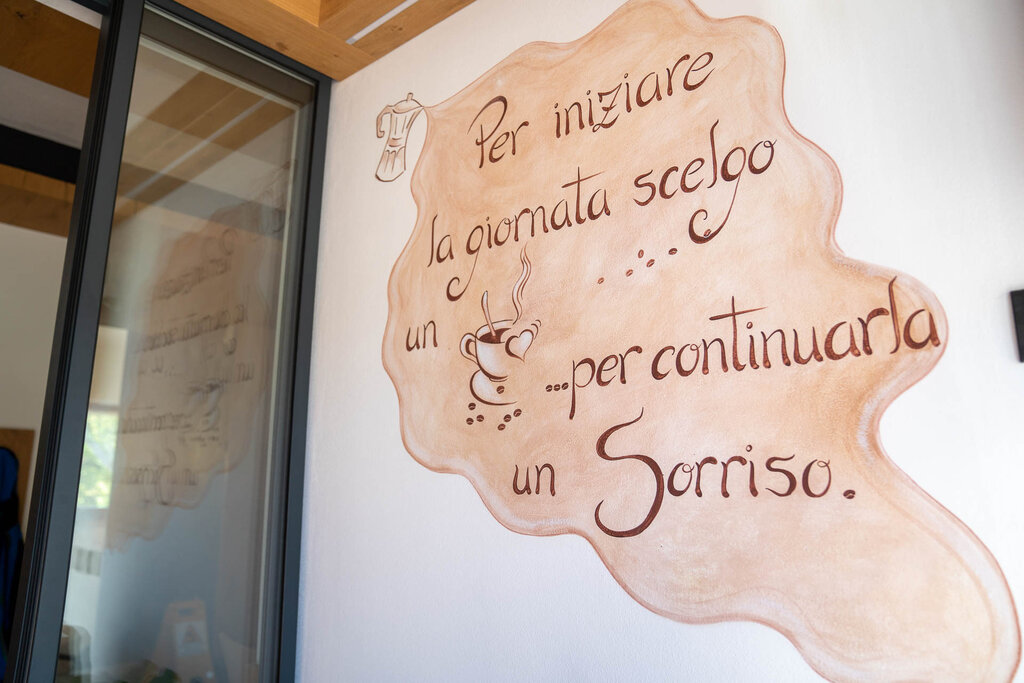 Per iniziare
la giornata scelgo
un
...per continuarla
un Sorriso.